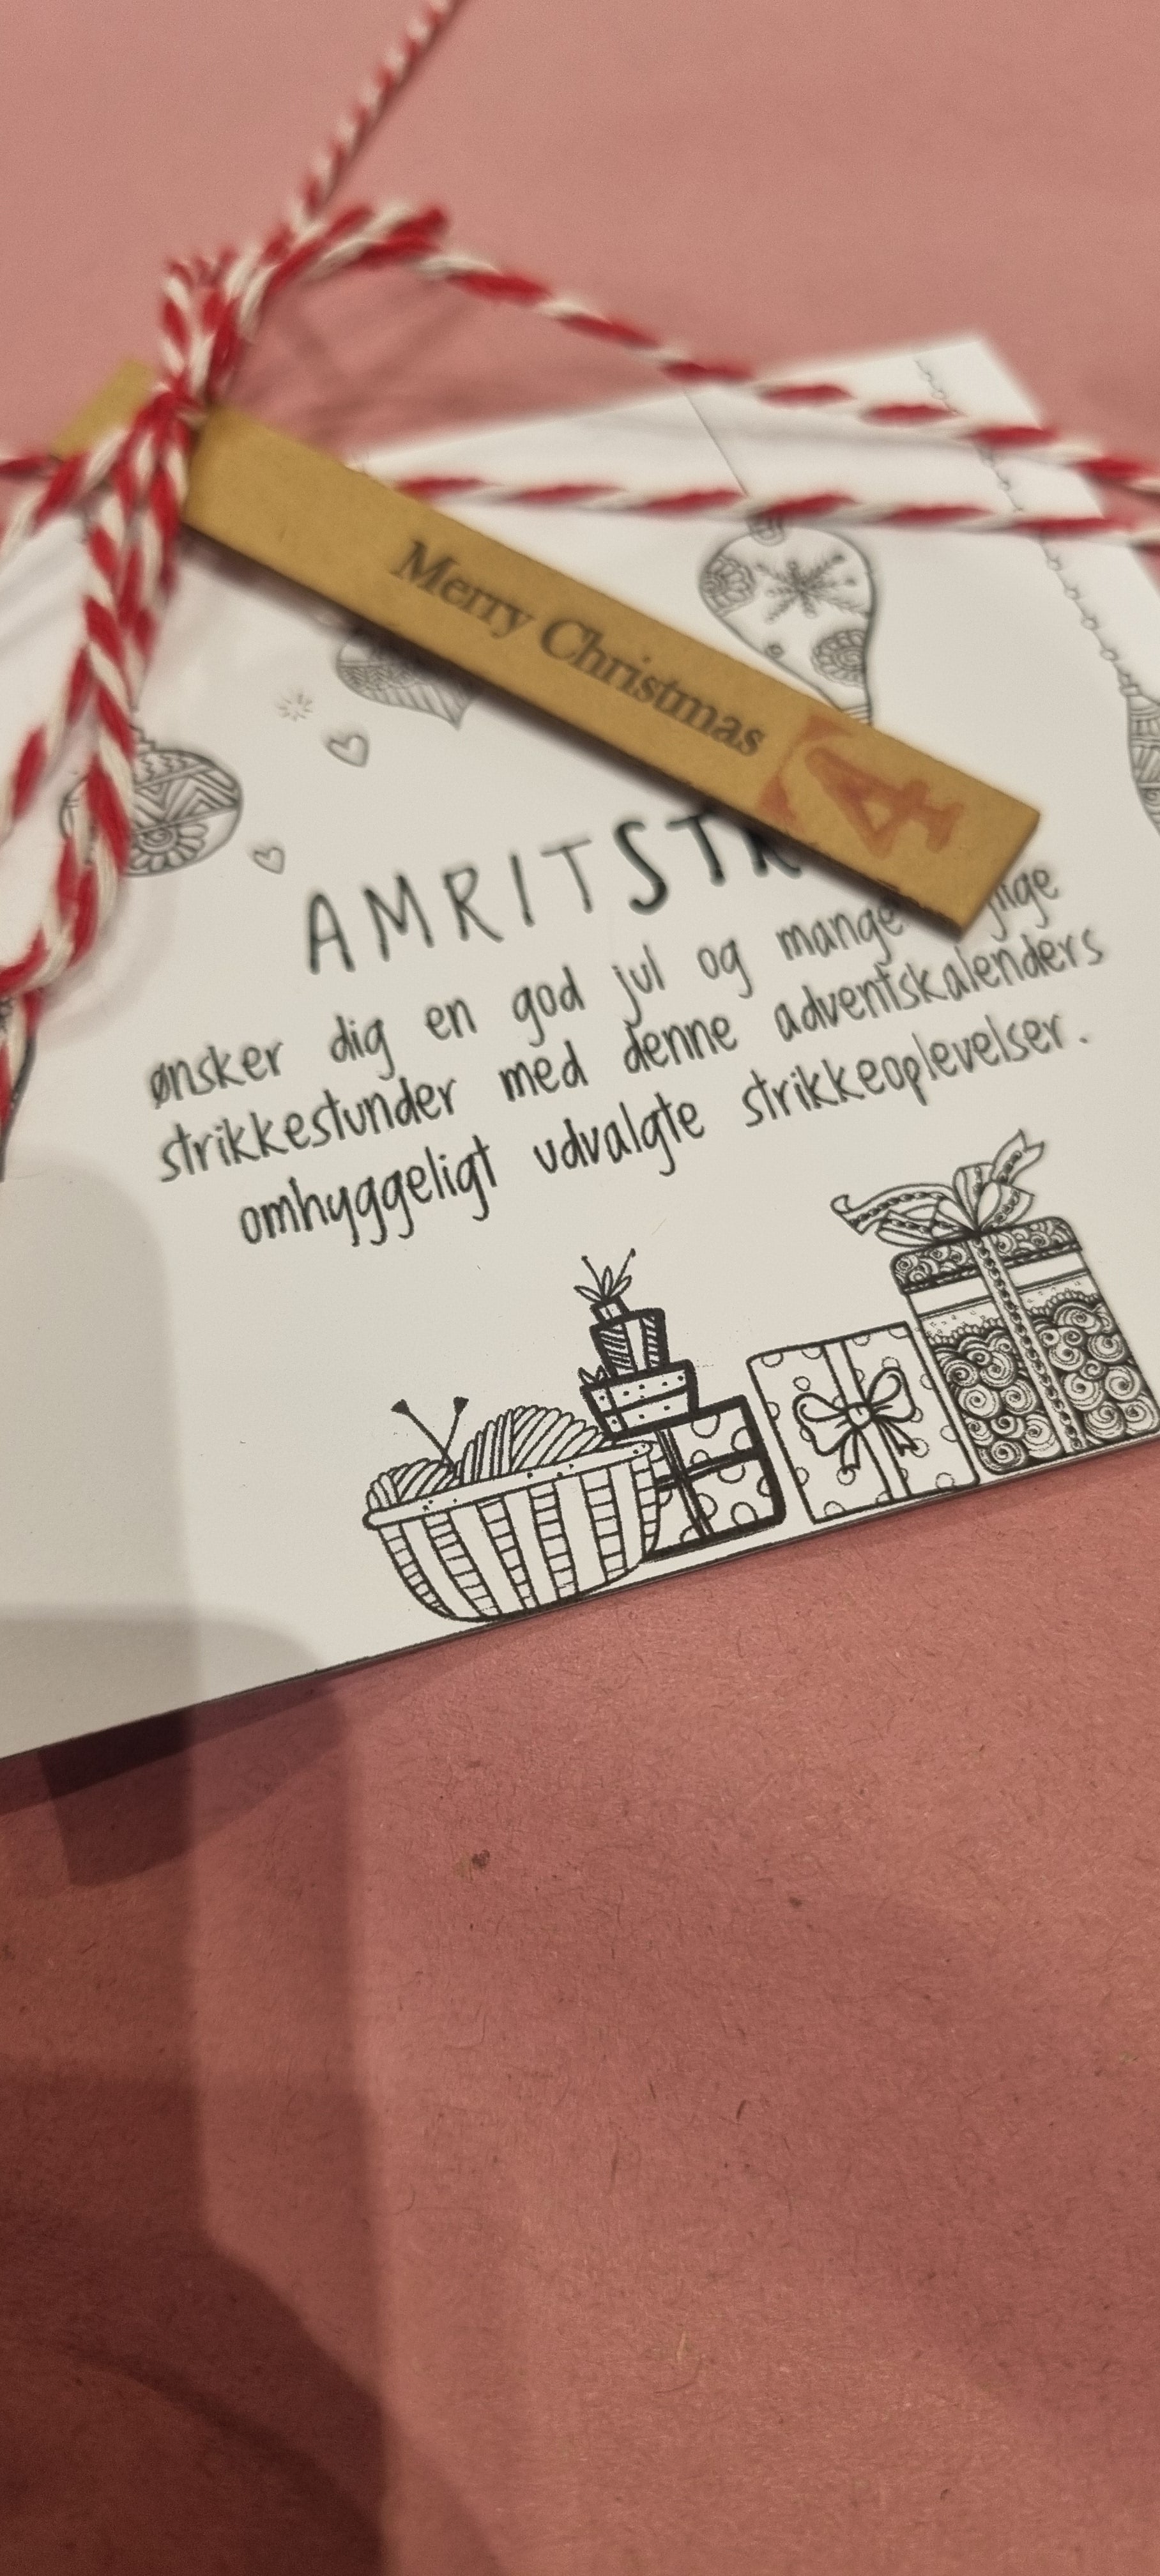 Merry Christmas
4
AMRITST
ønsker dig en god jul og mange
strikkestunder med denne adventskalenders
omhyggeligt udvalgte strikkeoplevelser.